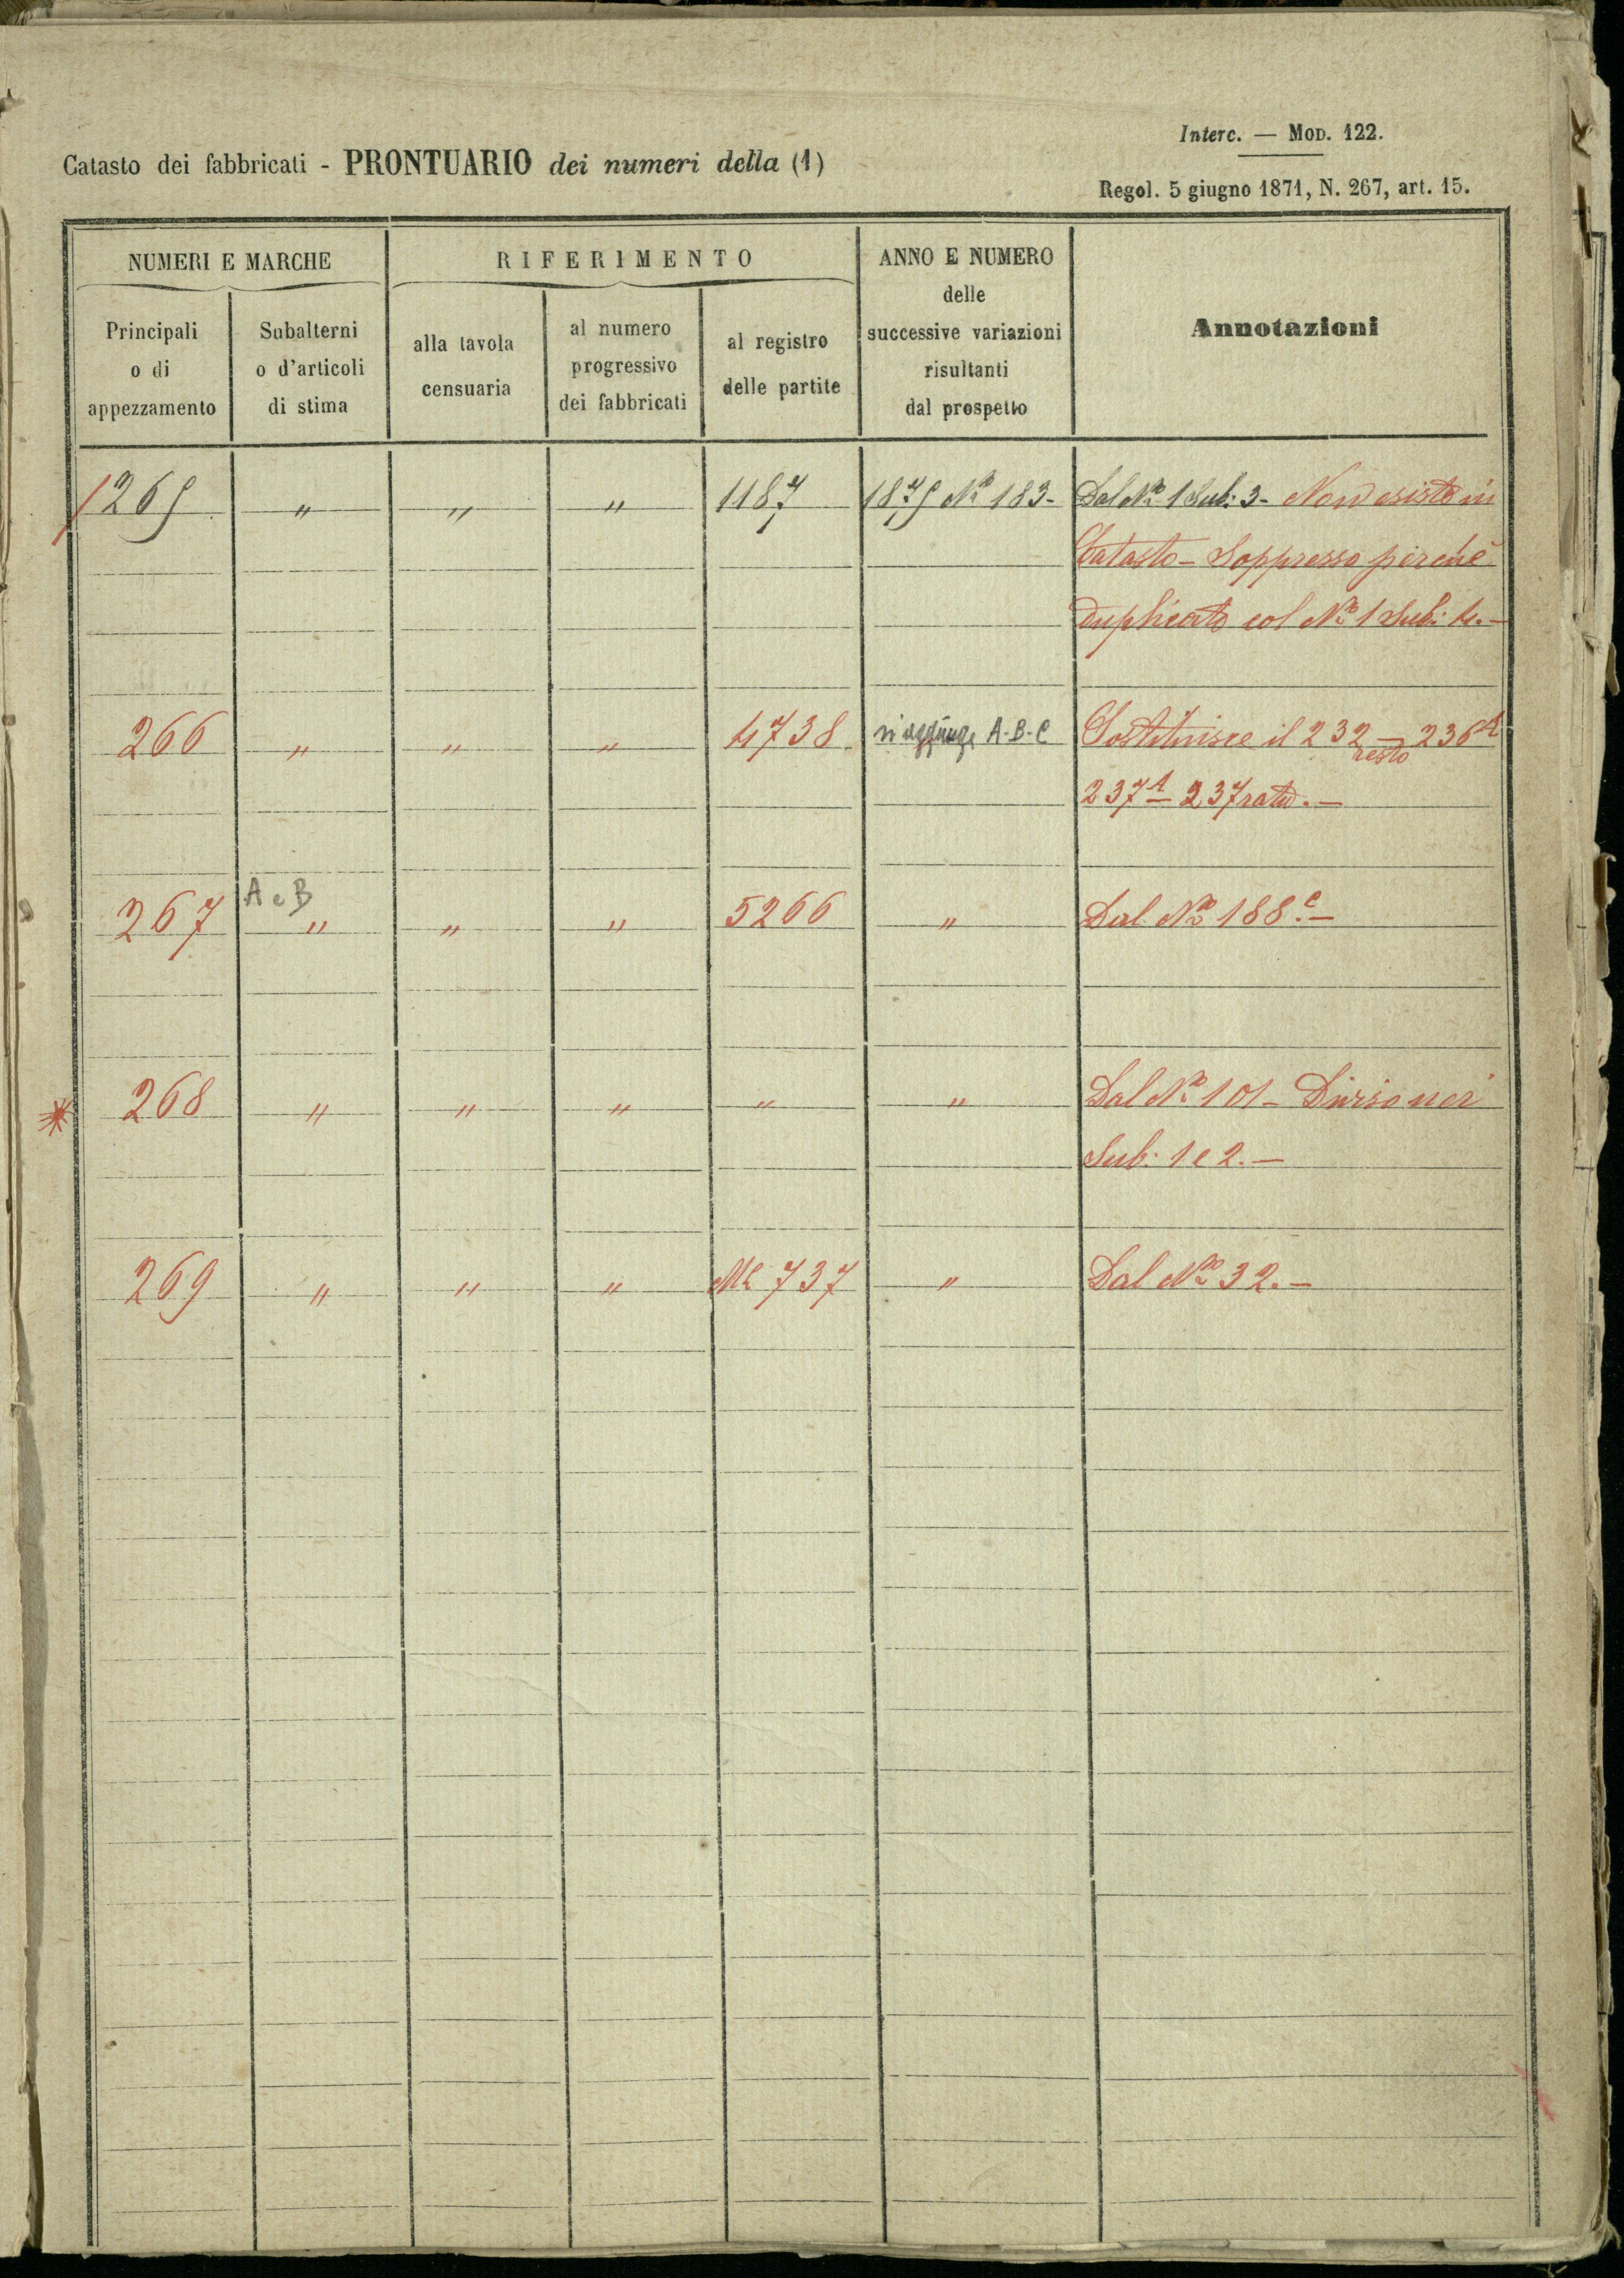 Interc. — MOD. 122.
Catasto dei fabbricati - PRONTUARIO dei numeri della (1)
Regol. 5 giugno 1871, N. 267, art. 15.
NUMERI E MARCHE
RIFERIMENTO
ANNO E NUMERO
delle
successive variazioni
risultanti
dal prospetto
Annotazioni
Principali
o di
appezzamento
Subalterni
o d'articoli
di stima
alla tavola
censuaria
al numero
progressivo
dei fabbricati
al registro
delle partite
265 " " " 1187 1875 No 183- Dal No 1 Sub: 3- Non esiste in
Catasto - Soppresso perchè
duplicato col No 1 Sub: 4.-
266 " " " 4738 si aggiunge A-B-C Sostituisce il 232 - 236 A
resto
237 A - 237 rato. -
A e B
267 " " " 5266 " Dal No 188 c -
268 " " " " " Dal No 101 - Diviso nei
Sub: 1 e 2. -
269 " " " 737 " Dal No 32. -